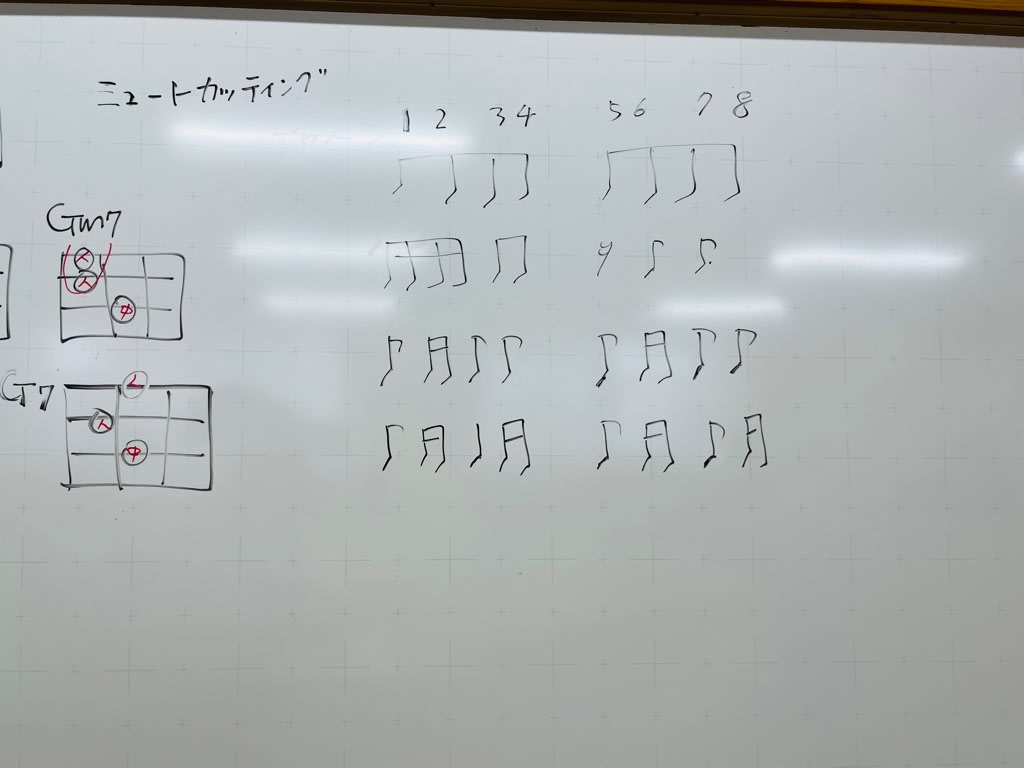 ミュートカッティング
1 2 3 4 5 6 7 8
Gm7
人
人
中
G7
人
中